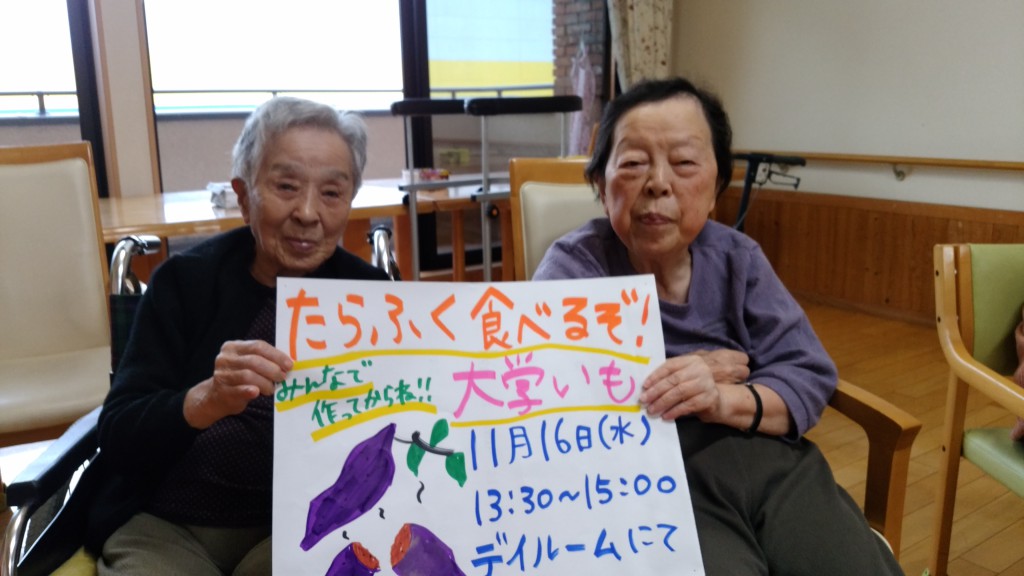 たらふく食べるぞ!
みんなで
作ってからね!!
大学いも
11月16日(水)
13:30〜15:00
デイルームにて